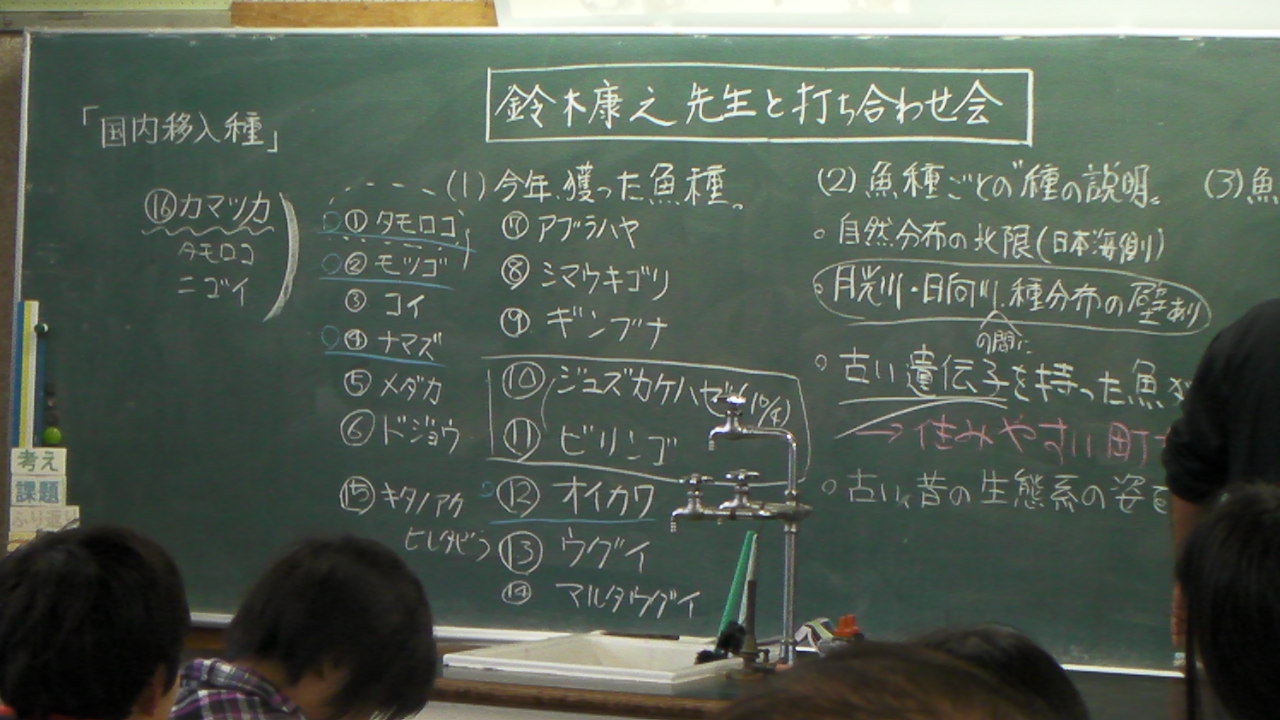 鈴木康之先生と打ち合わせ会
「国内移入種」
⑯カマツカ
タモロコ
ニゴイ
(1)今年、獲った魚種。
①タモロコ
②モツゴ
③コイ
④ナマズ
⑤メダカ
⑥ドジョウ
⑮キタノアカ
ヒレタビラ
⑦アブラハヤ
⑧シマウキゴリ
⑨ギンブナ
⑩ジュズカケハゼ(10/4)
⑪ビリンゴ
⑫オイカワ
⑬ウグイ
⑭マルタウグイ
(2)魚種ごとの"種の説明"
。自然分布の北限(日本海側)
。月光川・日向川、種分布の壁あり
の間に
。古い遺伝子を持った魚が
→住みやすい町
。古い、昔の生態系の姿を
(3)魚
考え
課題
ふり返